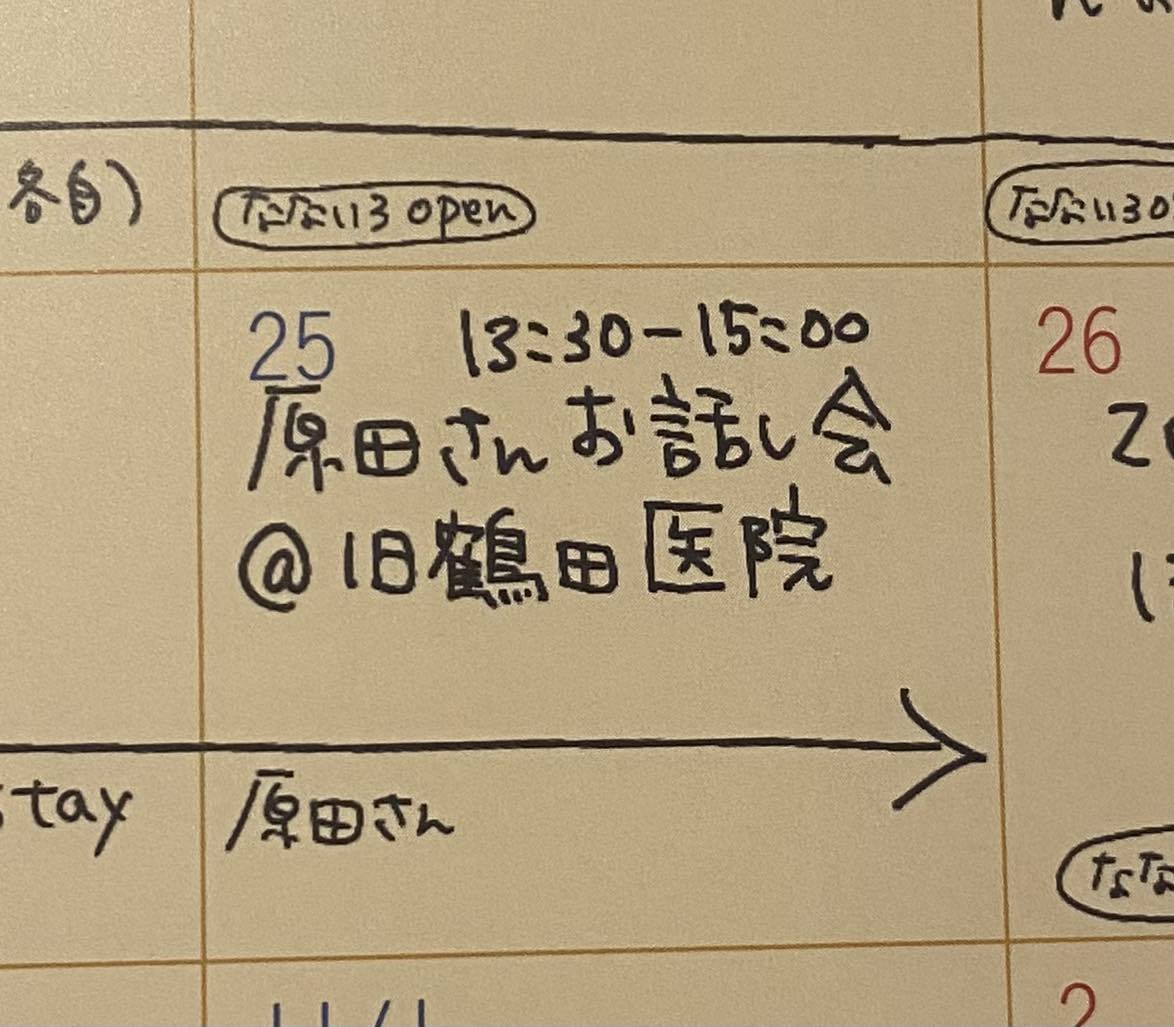 各自)
なないろ open
25 13:30-15:00
原田さんお話し会
@旧鶴田医院
stay 原田さん
26
なないろ
11/1
2